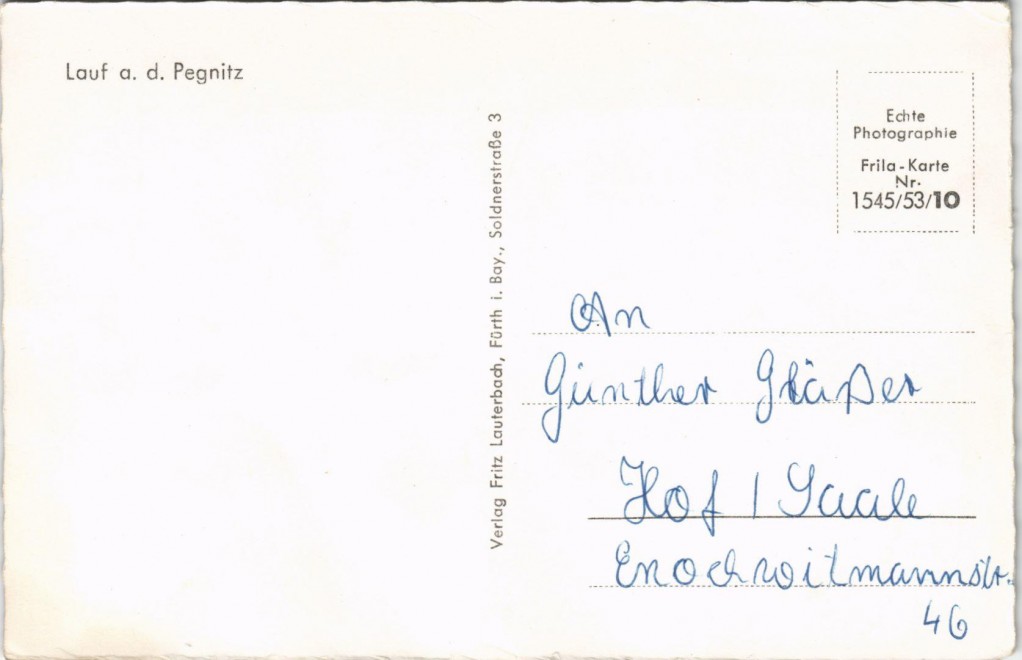 Lauf a. d. Pegnitz
Echte
Photographie
Frila-Karte
Nr.
1545/53/10
Verlag Fritz Lauterbach, Fürth i. Bay., Soldnerstraße 3
An
Günther Gräßer
Hof / Saale
Enochwitmannstr.
46